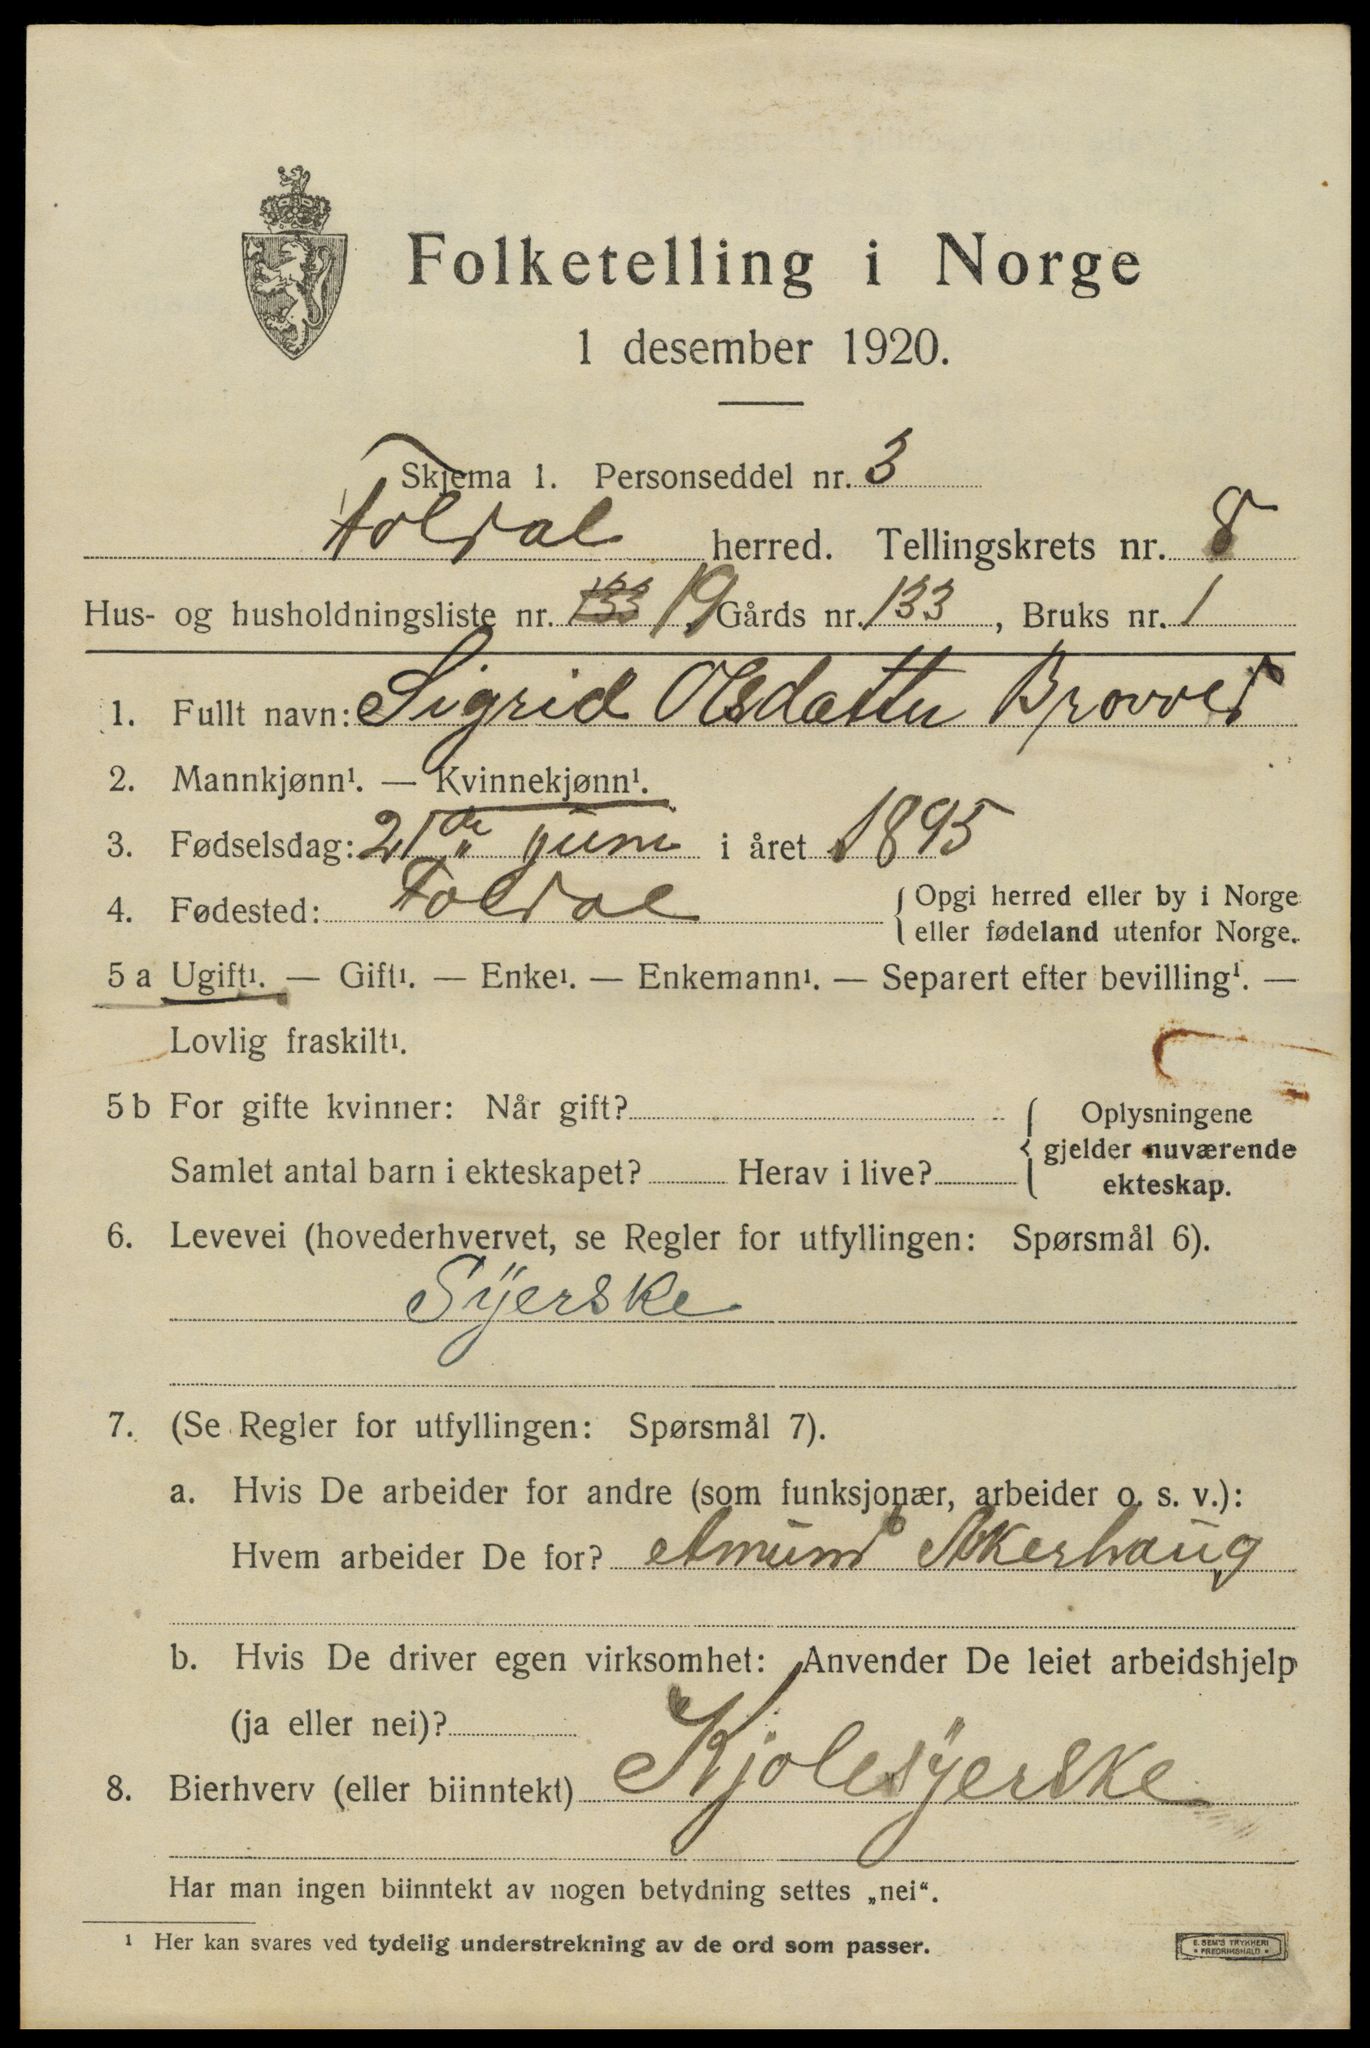 Folketelling i Norge
1 desember 1920.
Skjema 1. Personseddel nr. 3
Foldal herred. Tellingskrets nr. 8
Hus- og husholdningsliste nr. 133 19, Gårds nr. 133, Bruks nr. 1
1. Fullt navn: Sigrid Olsdatter Brovold
2. Mannkjønn¹. — Kvinnekjønn¹.
3. Fødselsdag: 21de juni i året 1895
4. Fødested: Foldal { Opgi herred eller by i Norge
eller fødeland utenfor Norge.
5 a Ugift¹. — Gift¹. — Enke¹. — Enkemann¹. — Separert efter bevilling¹. —
Lovlig fraskilt¹.
5 b For gifte kvinner: Når gift? { Oplysningene
gjelder nuværende
Samlet antal barn i ekteskapet? Herav i live? ekteskap.
6. Levevei (hovederhvervet, se Regler for utfyllingen: Spørsmål 6).
Syerske
7. (Se Regler for utfyllingen: Spørsmål 7).
a. Hvis De arbeider for andre (som funksjonær, arbeider o. s. v.):
Hvem arbeider De for? Amund Akerhaug
b. Hvis De driver egen virksomhet: Anvender De leiet arbeidshjelp
(ja eller nei)?
8. Bierhverv (eller biinntekt) Kjolesyerske
Har man ingen biinntekt av nogen betydning settes „nei“.
¹ Her kan svares ved tydelig understrekning av de ord som passer.
E. SEM'S TRYKKERI
* FREDRIKSHALD *